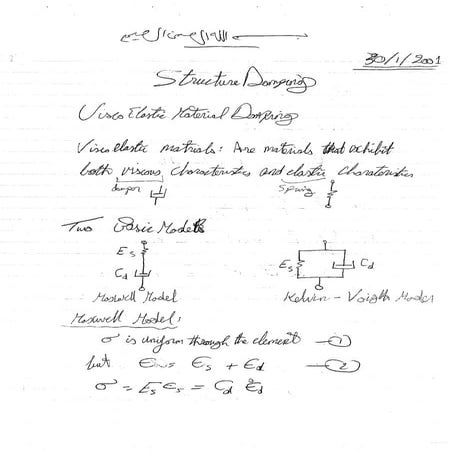 30/1/2001
Structure Damping
Visco Elastic Material Damping
Viscoelastic materials: Are materials that exhibit
both viscous characteristics and elastic charateristics
damper Spring
Two Basic Models
Es
Cd
Es Cd
Maxwell Model Kelvin - Voigth Model
Maxwell Model:
σ is uniform through the element — ①
but ϵ = ϵs + ϵd — ②
σ = Es ϵs = Cd ϵ̇d